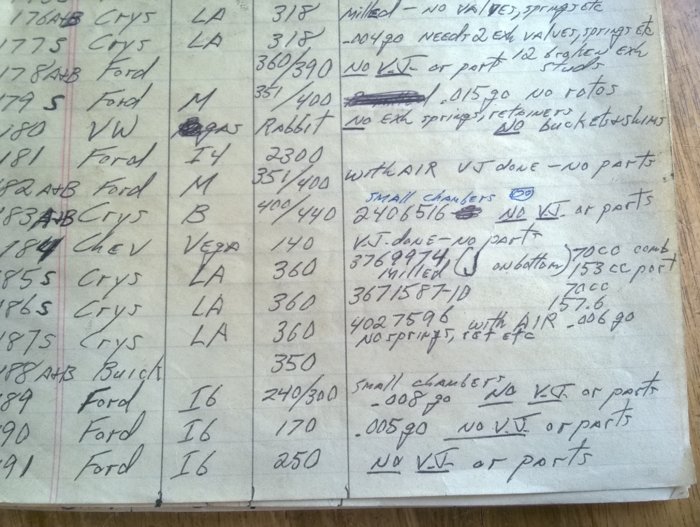 176A+B Crys LA 318 Milled - No valves, springs etc
177S Crys LA 318 .004go needs 2 exh valves, springs etc
178A+B Ford 360/390 No V.J. or parts 12 broken exh studs
179 S Ford M 351/400 .015go no rotos
180 VW gas Rabbit No Exh springs, retainers No buckets+shims
181 Ford I4 2300 with AIR VJ done - No parts
82A+B Ford M 351/400
small chambers
83A+B Crys B 400/440 2406516 No V.J. or parts
184 Chev Vega 140 V.J. done - No parts
185S Crys LA 360 3769974 Milled (J on bottom) 70cc comb 153cc port
186S Crys LA 360 3671587-1D 70cc 157.6
187S Crys LA 360 4027596 with AIR .006go
No springs, ret etc
188A+B Buick 350
89 Ford I6 240/300 small chambers .008go No V.J. or parts
90 Ford I6 170 .005go No V.J. or parts
91 Ford I6 250 No V.J. or parts